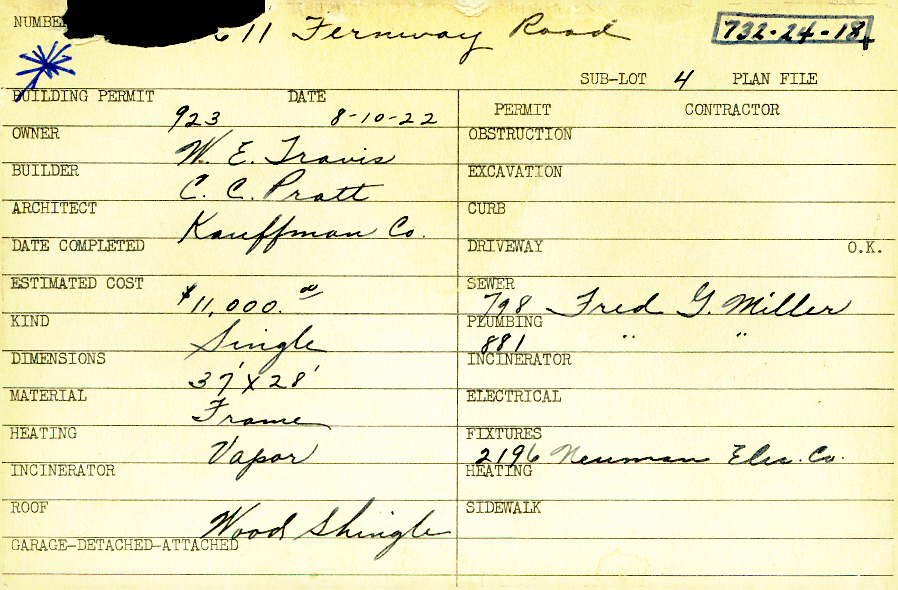 NUMBER 611 Fernway Road 732-24-18
SUB-LOT 4 PLAN FILE
BUILDING PERMIT 923 DATE 8-10-22
OWNER W. E. Travis
BUILDER C. C. Pratt
ARCHITECT Kauffman Co.
DATE COMPLETED
ESTIMATED COST $11,000.00
KIND Single
DIMENSIONS 37' X 28'
MATERIAL Frame
HEATING Vapor
INCINERATOR
ROOF Wood Shingle
GARAGE-DETACHED-ATTACHED
PERMIT CONTRACTOR
OBSTRUCTION
EXCAVATION
CURB
DRIVEWAY O.K.
SEWER 798 Fred G. Miller
PLUMBING 881 " "
INCINERATOR
ELECTRICAL
FIXTURES 2196 Neuman Elec. Co.
HEATING
SIDEWALK